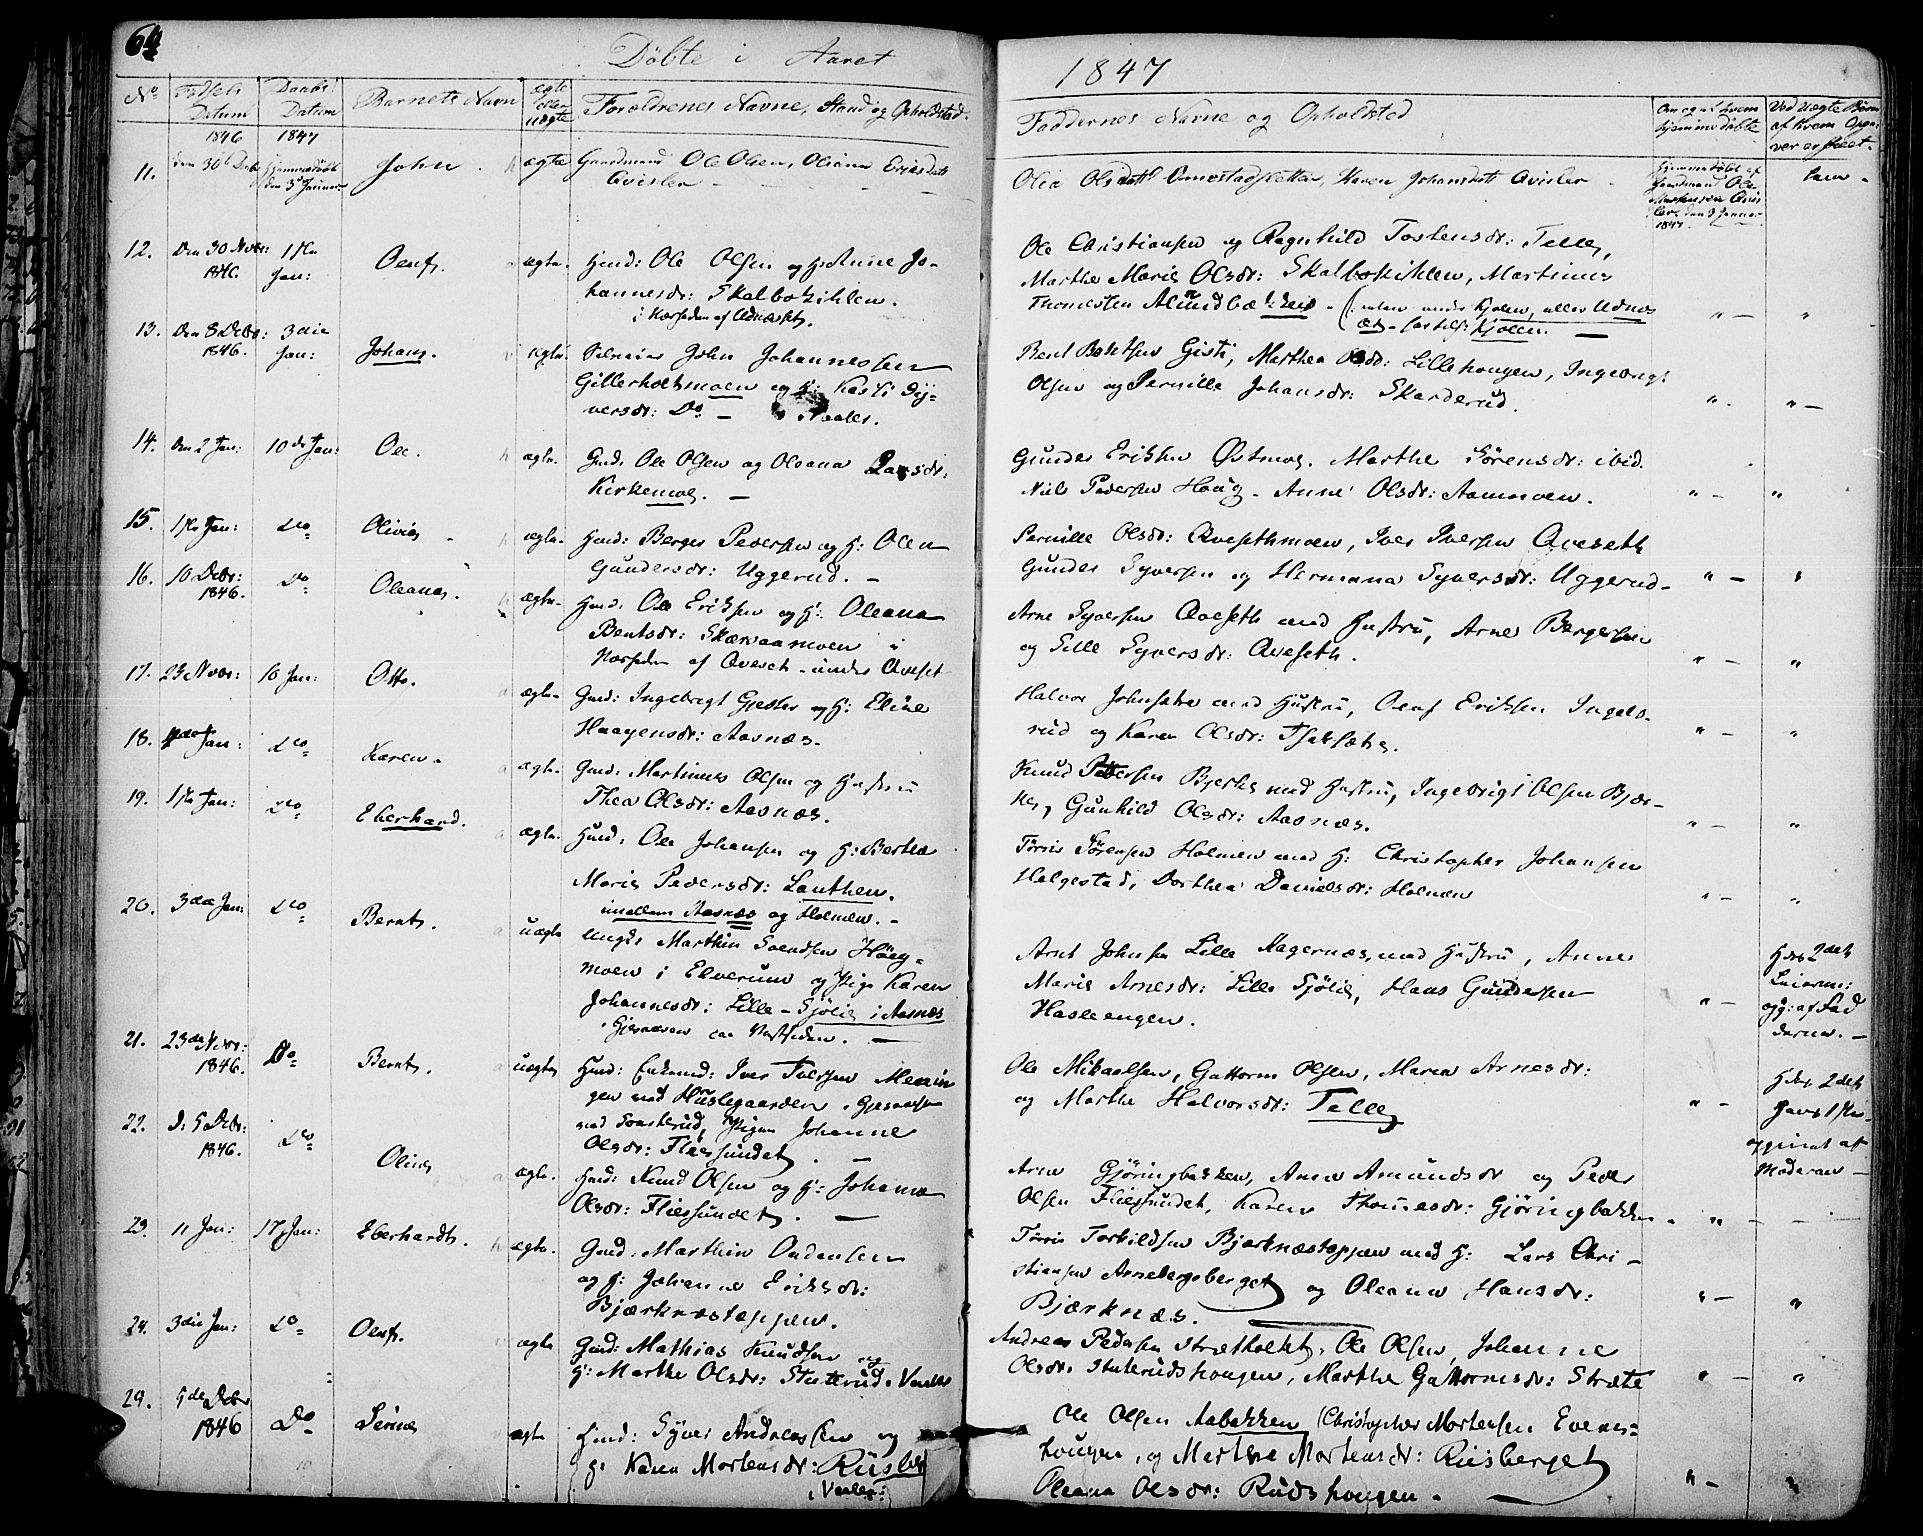 64
Döbte i Aaret
1847
No
Födsels Datum
Daabs Datum
Barnets Navn
ægte eller uægte
Forældrenes Navne, Stand og Opholdsted.
Faddernes Navne og Opholdsted
Om og af hvem hjemmedöbte
Ved uægte Börn
af hvem Opgi-
ver er skeet.
1846 1847
11. den 30te Decbr hjemmedöbt den 3 Januar John ægte Gaardmand Ole Olsen, Oliana Eriksdatt
Qvisler
Olia Olsdatt Ornestadsletten, Karen Johansdatt Qvisler
hjemmedöbt af
Gaardmand Ole
den 3 Januar
1847.
12. Den 30 Novbr: 1846. 1ste Jan: Oluf. ægte. Huusd: Ole Olsen og H: Anne Jo-
hannesdr: Skalbokihlen.
i Nærheden af Udnæset.
Ole Christiansen og Ragnhild Tostensdr: Telle,
Marthe Marie Olsdr: Skalbokihlen, Martinus
Thomesten Alundbækken
Kjolen.
13. Den 8 Decbr: 1846. 3die Jan: Johans. ægte. Pelmager John Johannessen
Gillerholtmoen og H: Kasti Sy-
versdr: Do – Vaaler.
Bent Bentsen Gisti, Marthea Olsdr: Lillehougen, Ingebrigt
Olsen og Pernille Johansdr: Skarderud.
14. Den 2 Jan: 10de Jan: Ole. ægte. Gmd. Ole Olsen og Oleana Larsdr:
Kirkemoe. –
Gunder Eriksen Östmoe. Marthe Sörensdr: ibid.
Niels Pedersen Houg – Anne Olsdr: Aamoen.
15. 1ste Jan: do Olivia ægte. Huusd: Berger Pedersen og H: Olea
Gundersdr: Uggerud. –
Pernille Olsdr: Qvesethmoen, Iver Iversen Qveseth
Gunder Syversen og Hermana Syversdr: Uggerud –
16. 10 Decbr: 1846. do Oleana. ægte. Huusd. Ole Eriksen og H: Oleana
Bentsdr: Skærvaamoen i
Nærheden af Qveset – under Qveset
Arne Syversen Qveseth med Hustru, Arne Bergersen
og Sille Syversdr: Qveseth.
17. 23 Novbr: 10 Jan: Otto. ægte. Gmd: Ingebrigt Gjester og H: Eline
Haagensdr: Aasnæs.
Halvor Johnsætre med Hustru, Oluf Eriksen Ingels-
rud og Karen Olsdr:
18. Jan: do Karen. ægte. Gmd. Martinus Olsen og Hustru
Thea Olsdr: Aasnæs.
Knud Pettersen Bjerke med Hustru, Ingebrigt Olsen Bjer-
ke, Gunhild Olsdr: Aasnæs.
19. 1ste Jan: do Eberhard. ægte. Huusd. Ole Johansen og H: Berthe
Marie Pedersdr: Lauthen.
imellem Aasnæs og Holmen. –
Törris Sörensen Holmen med H: Christopher Johansen
Helgestad, Dorthea Davidsdr: Holmen
20. 3die Jan: do Bernt. uægte Ungk: Marthin Svendsen Houg-
moen i Elverum og Pige Karen
Johannesdr: Lille – Sjölie i Aasnæs
Arnt Johnsen Lille Hagernæs med Hustru, Anne
Marie Arnesdr: Lille Sjölie, Hans Gundersen
Hasleengen.
Hdes 2det
Leierm:
opg: af Fad
derne. –
21. 23de Novbr: 1846. Do Bernt. uægte Huusd: Enkemd: Iver Tve
Johanne
Olsdr: Fliesundet. –
Ole Mikaelsen, Guttorm Olsen, Maren Arnesdr:
og Marthe Halvorsdr: Telle
Hdes 2det
Hans 1ste
opgivet af
Moderen –
22. D: 5 Decbr: 1846. do Oline ægte. Huusd: Knud Olsen og H: Johanne
Olsdr: Fliesundet. –
Arne Gjöringbakken, Anne Amundsdr og Peder
Olsen Fliesundet, Karen Thomesdr: Gjöringbakken
23. 11 Jan: 17 Jan: Eberhardt. ægte. Gmd: Marthin Oudensen
og H: Johanne Eriksdr:
Bjærknæsteppen.
Törris Torkildsen Bjærknæsteppen med H: Lars Chri-
stiansen Arnebergsberget og Oleana Hansdr:
Bjærknæs.
24. 3die Jan: do Oluf. ægte Gmd: Mathias Knudsen og
H: Marthe Olsdr: Stuterud i Vaaler
Andreas Pedersen Strætkolet, Ole Olsen, Johanne
Olsdr. Stuterudshougen, Marthe Guttormsdr: Stræte
29. 5de Decbr 1846 Do Serine ægte Huusd: Syver Andreassen og
H. Karen Mortensdr: Riisber
i Vaaler:
Ole Olsen Aabakken, Christopher Mortensen Evenes-
hougen, og Marthe Mortensdr: Riisberget
Oleana Olsdr: Rudshougen.